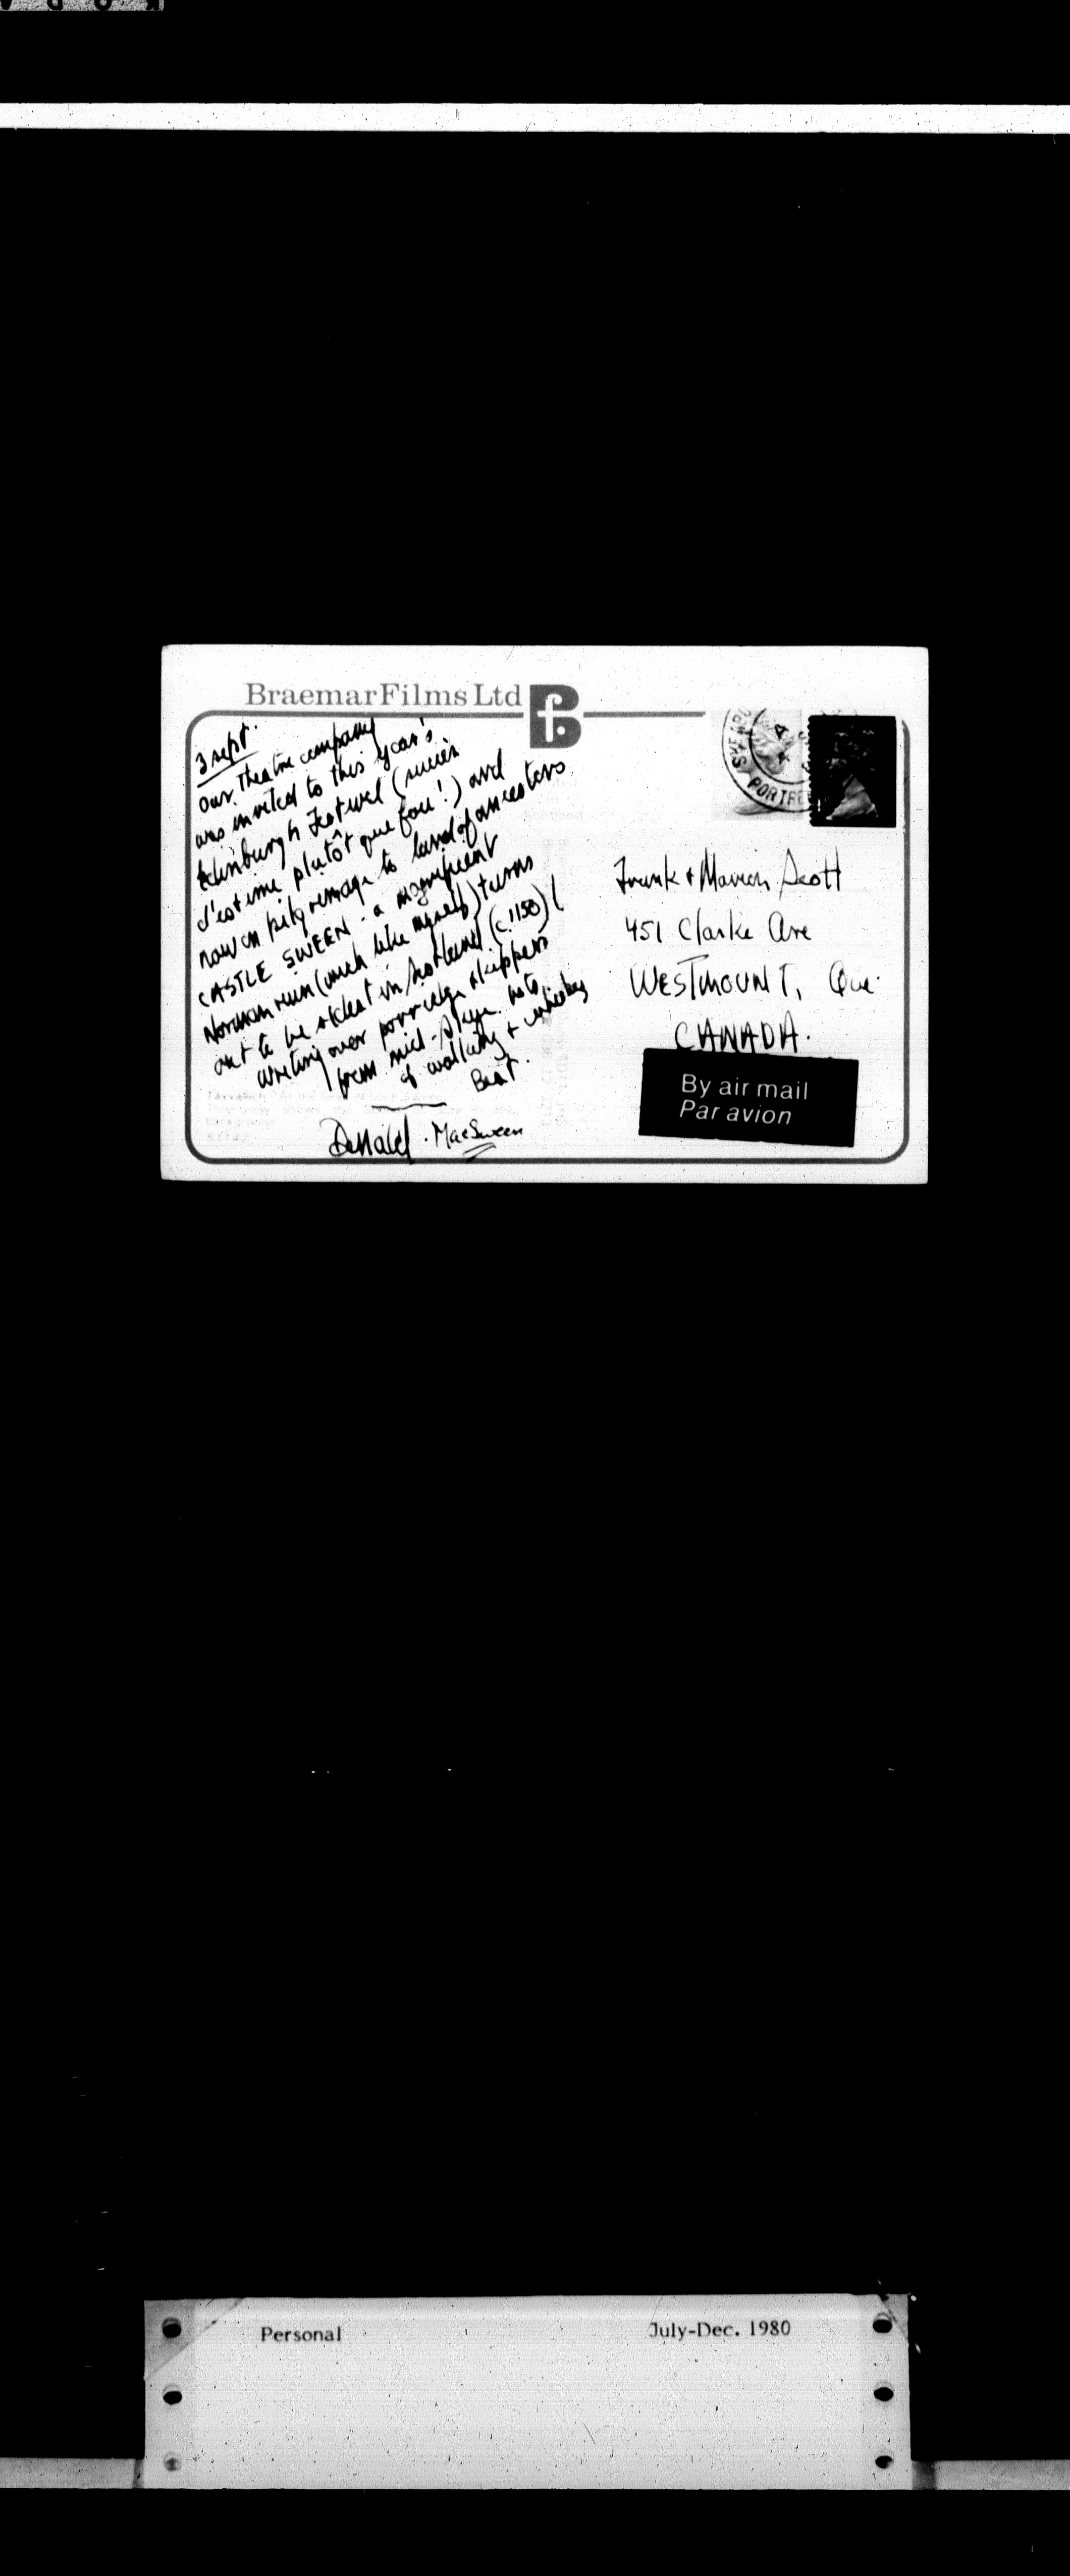 BraemarFilms Ltd
3 sept.
Our theatre company
was invited to this year's
Edinburgh Festival (succès
d'estime plutôt que fou!) and
now on pilgrimage to land of ancestors.
CASTLE SWEEN - a magnificent
Norman ruin (much like myself) turns
out to be oldest in Scotland. (c. 1150) (
Writing over porridge + kippers
from mid-Skye.
of walking + whiskey
Best.
Donald. MacSween
Tayvallich At the head of Loch Sween
PORTREE
Frank + Marian Scott
451 Clarke Ave
WESTMOUNT, Que.
CANADA.
By air mail
Par avion
Personal
July-Dec. 1980